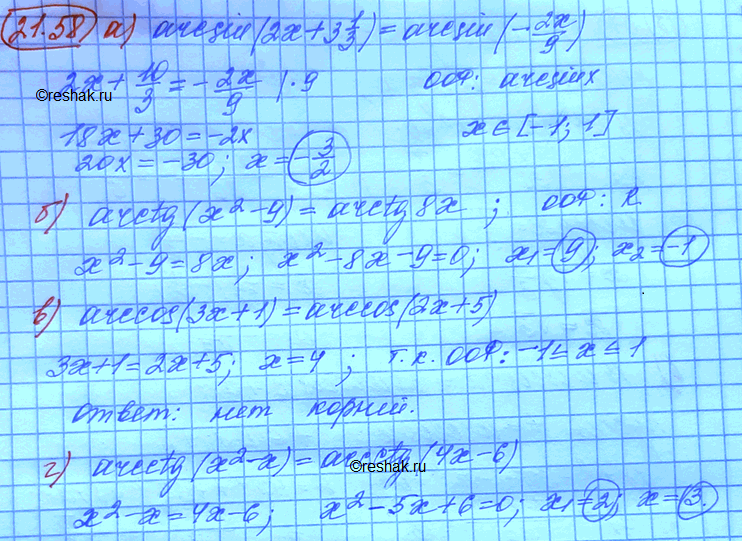 21.58) а) arcsin(2x+3 1/3) = arcsin(-2x/9)
2x + 10/3 = -2x/9 | · 9   ООФ: arcsin x
©reshak.ru
18x+30 = -2x   x ∈ [-1; 1]
20x = -30; x = -3/2
б) arctg(x²-9) = arctg 8x ; ООФ: R
x²-9=8x; x²-8x-9=0; x₁=9; x₂=-1
в) arccos(3x+1) = arccos(2x+5)
3x+1=2x+5; x=4 ; т.к. ООФ: -1≤x≤1
ответ: нет корней.
г) arcctg(x²-x) = arcctg(4x-6)
©reshak.ru
x²-x=4x-6; x²-5x+6=0; x₁=2; x=3.